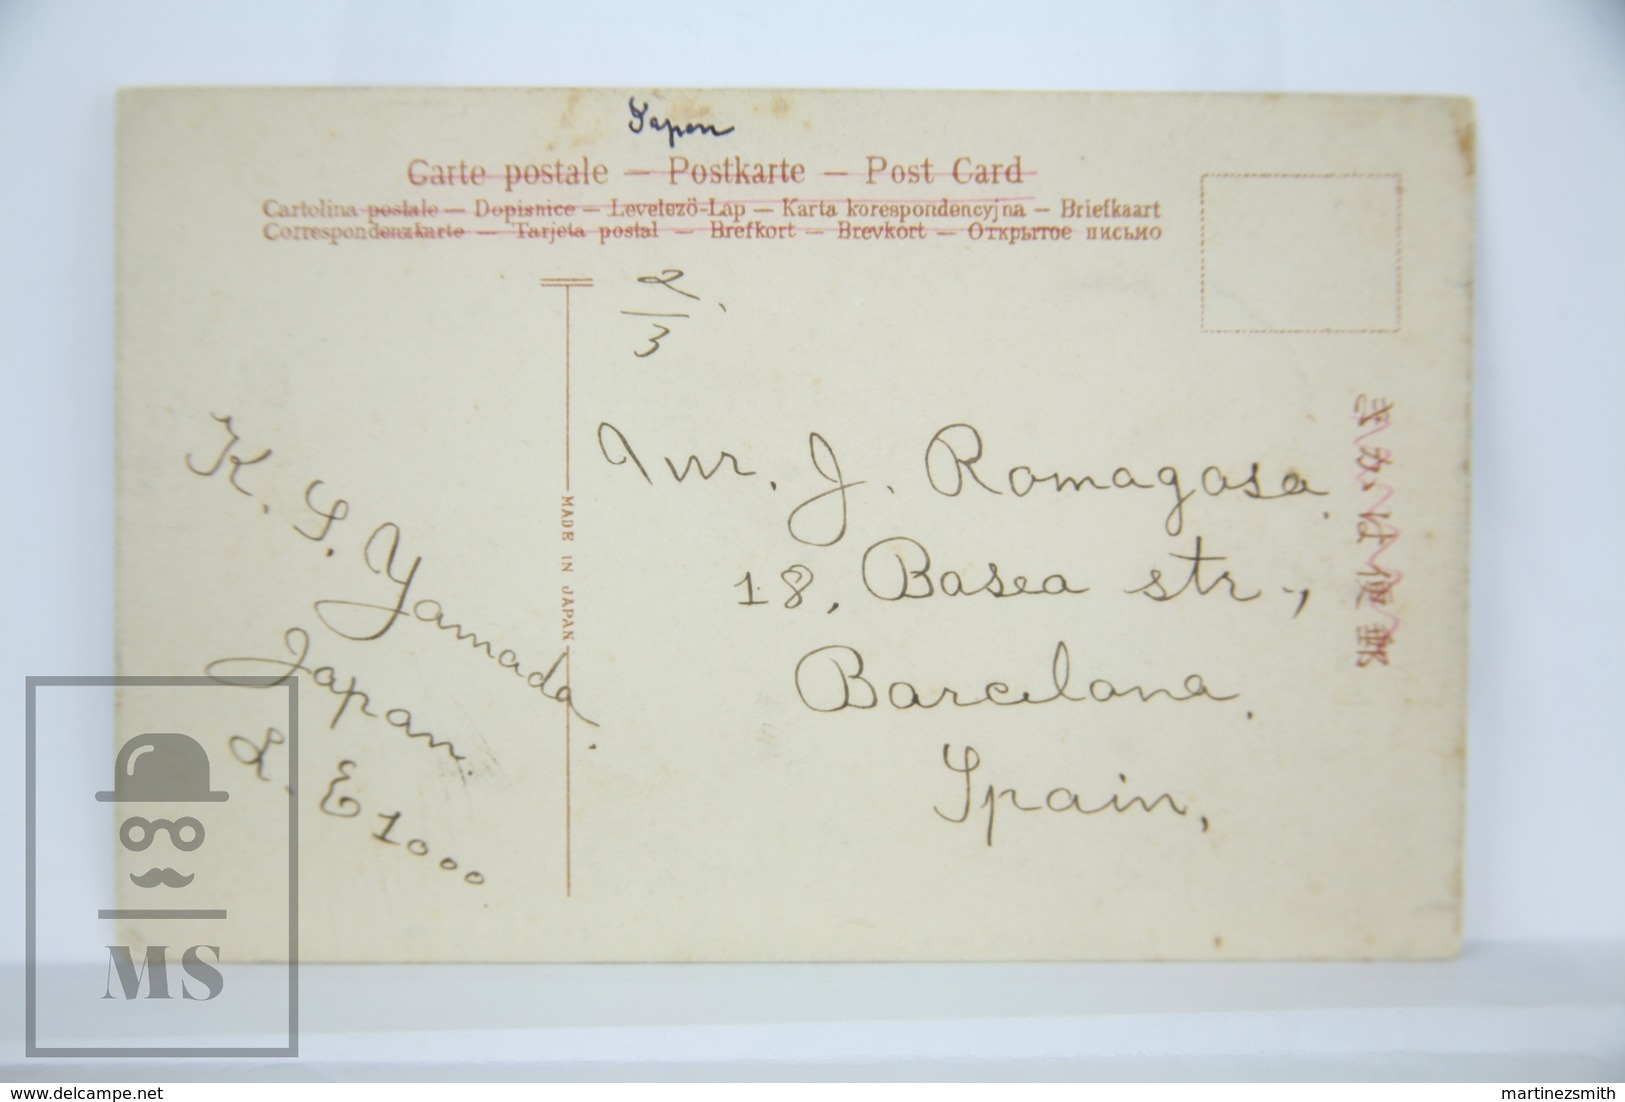 Japon
Carte postale — Postkarte — Post Card
Cartolina postale — Dopisnice — Levelező-Lap — Karta korespondencyjna — Briefkaart
Correspondenzkarte — Tarjeta postal — Brefkort — Brevkort — Открытое письмо
2/3
Mr. J. Romagosa.
18, Basea str.,
Barcelona.
Spain,
K. S. Yamada.
Japan.
L. E 1000
MADE IN JAPAN
きかは便郵
MS
delcampe.net
martinezsmith